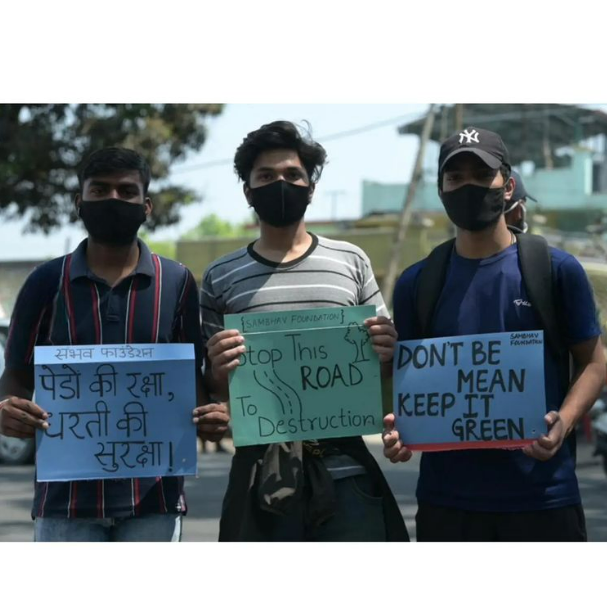 संभव फाउंडेशन
पेडो की रक्षा,
धरती की
सुरक्षा!
{SAMBHAV FOUNDATION}
Stop This
ROAD
To
Destruction
SAMBHAV
FOUNDATION
DON'T BE
MEAN
KEEP IT
GREEN
NY